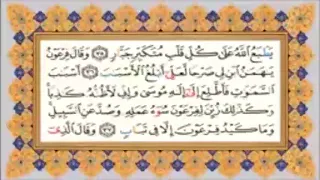 يَطْبَعُ اللَّهُ عَلَىٰ كُلِّ قَلْبِ مُتَكَبِّرٍ جَبَّارٍ ﴿٣٥﴾ وَقَالَ فِرْعَوْنُ
يَا هَامَانُ ابْنِ لِي صَرْحًا لَعَلِّي أَبْلُغُ الْأَسْبَابَ ﴿٣٦﴾ أَسْبَابَ
السَّمَاوَاتِ فَأَطَّلِعَ إِلَىٰ إِلَٰهِ مُوسَىٰ وَإِنِّي لَأَظُنُّهُ كَاذِبًا
وَكَذَٰلِكَ زُيِّنَ لِفِرْعَوْنَ سُوءُ عَمَلِهِ وَصُدَّ عَنِ السَّبِيلِ
وَمَا كَيْدُ فِرْعَوْنَ إِلَّا فِي تَبَابٍ ﴿٣٧﴾ وَقَالَ الَّذِي